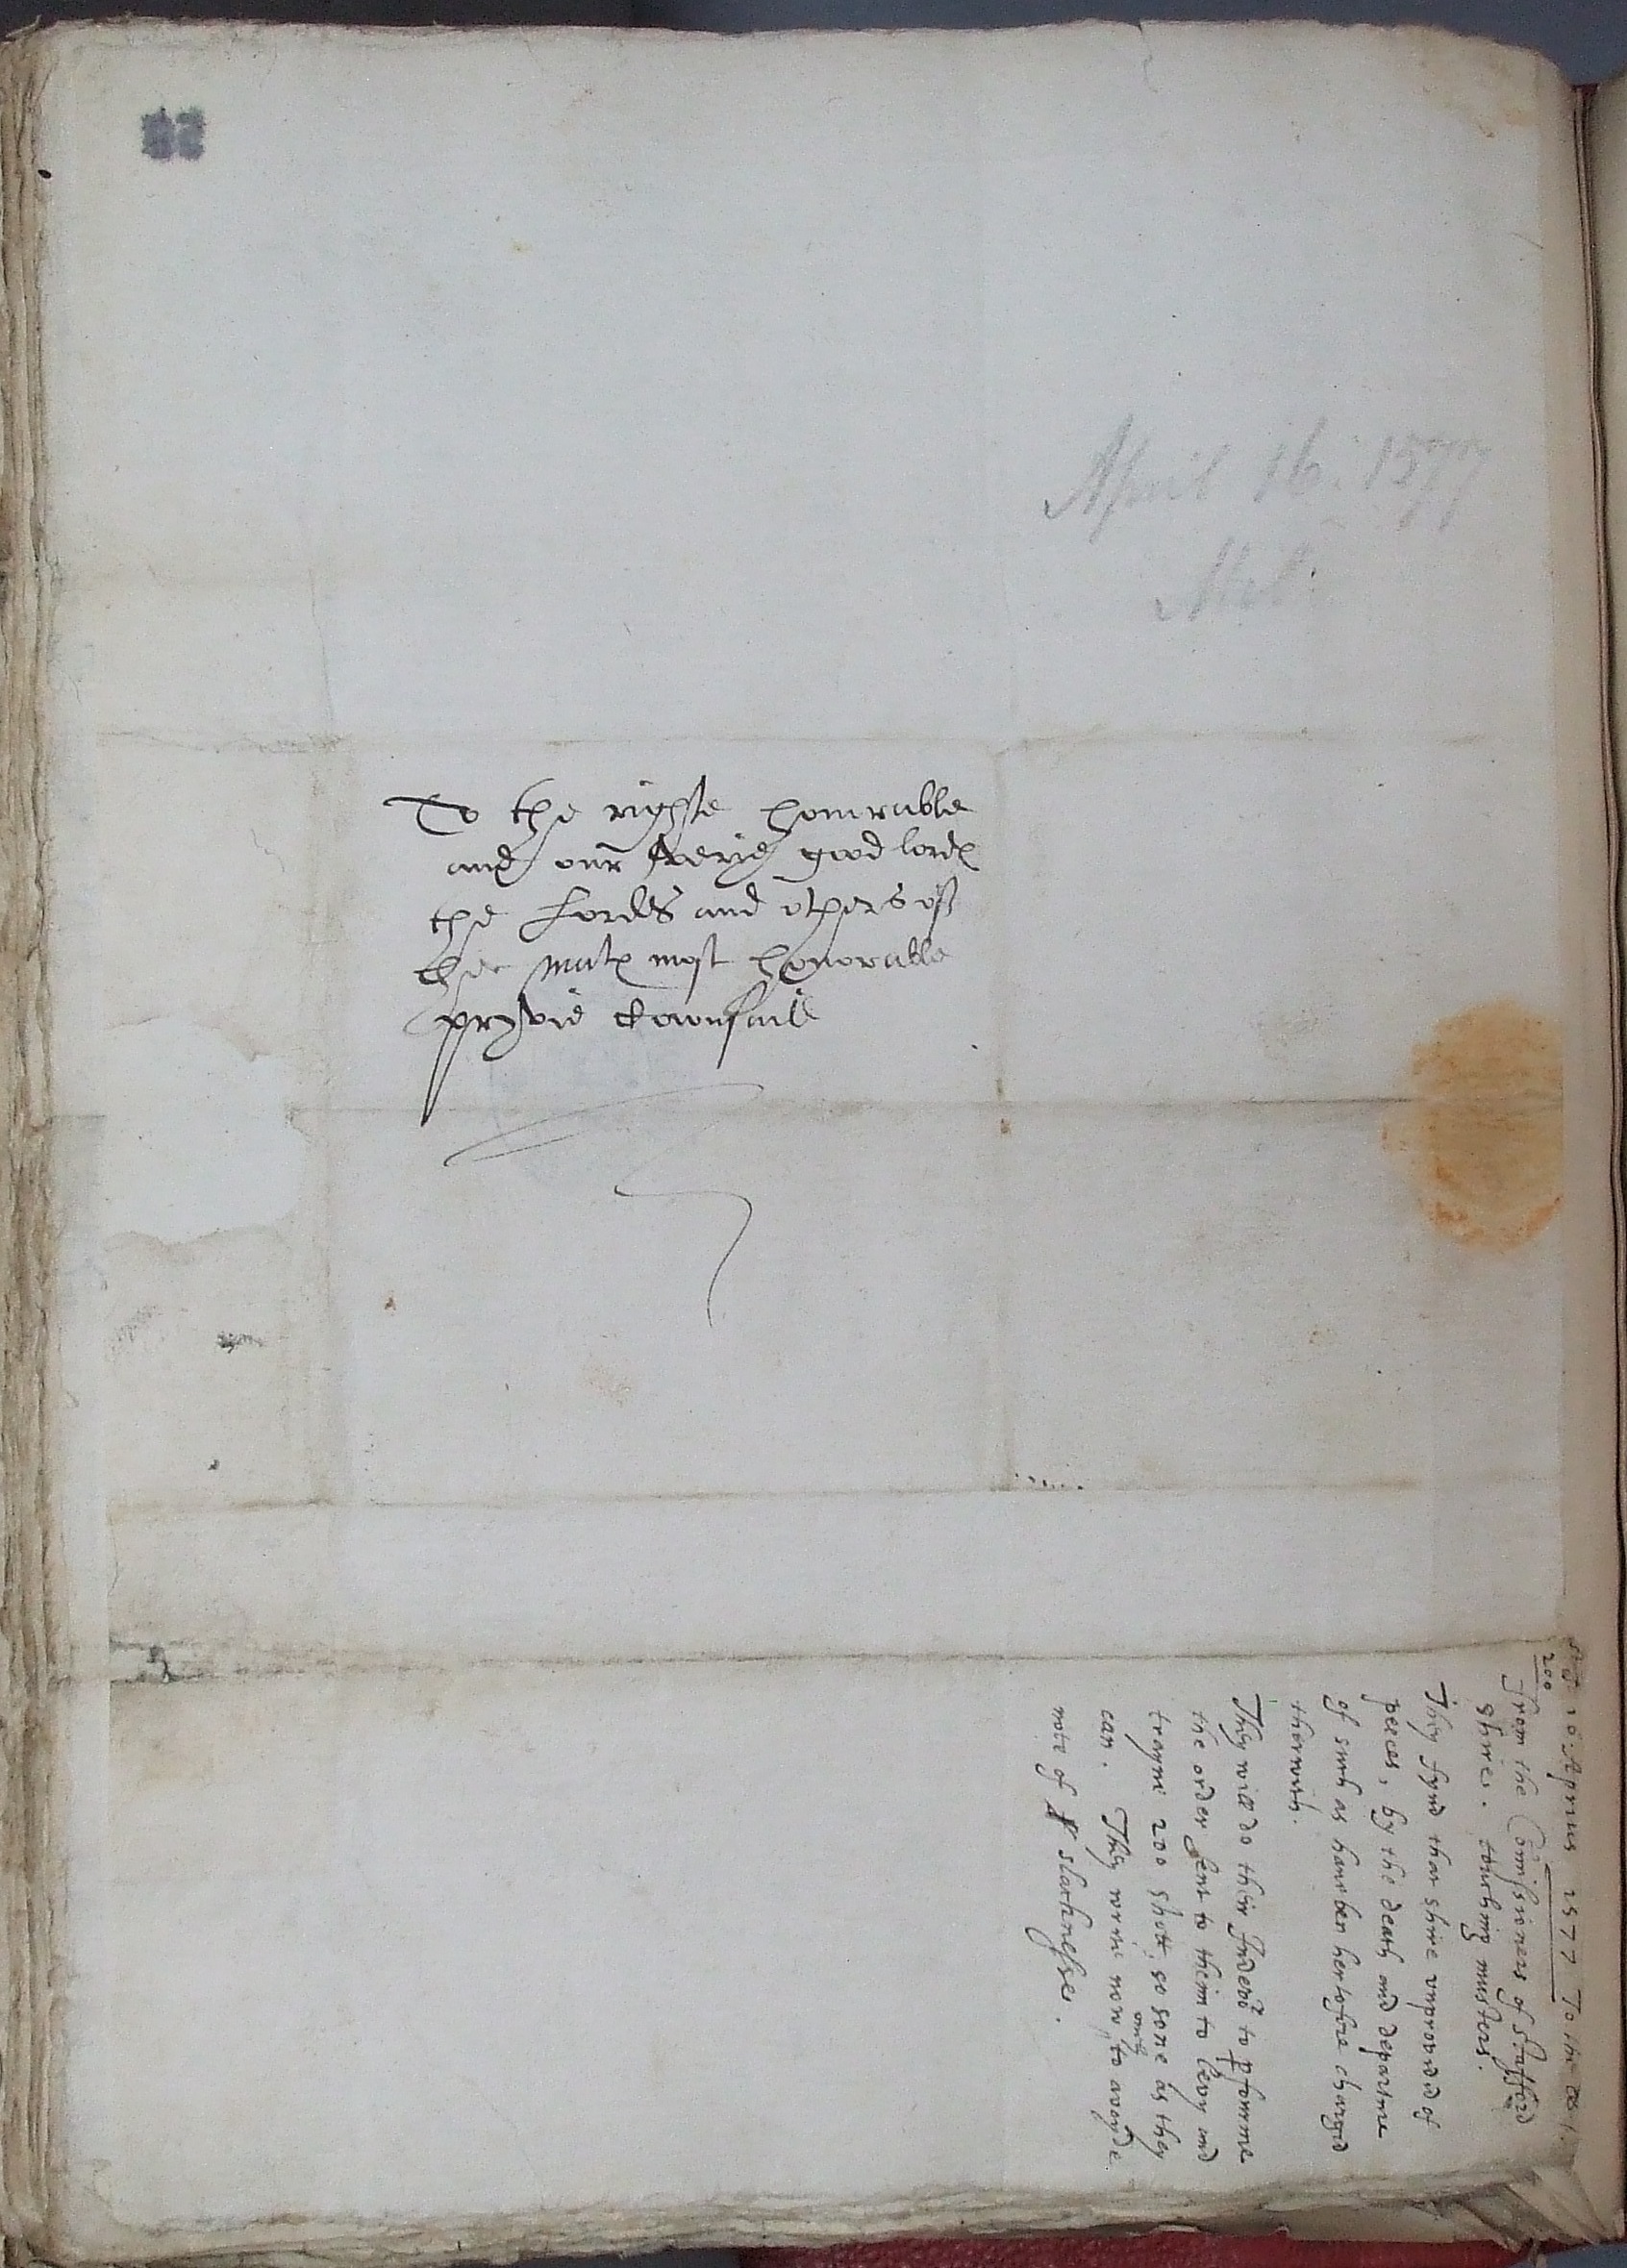 April 16. 1577
To the righte honnrable
and our verie good lordes
the Lordes and others of
her maties most honorable
pryvie Counsaile
16. Aprilis 1577 To the
200
From the Comissioners of Stafford
shire. touching musters.
They fynd that shire unprovided of
peeces, by the death and departure
of such as have ben hertofore charged
therwith.
They will do their Indevor to pforme
the order sent to them to levy and
trayne 200 shott, so sone as they
can. They write now only to avoyde
note of slacknesse.